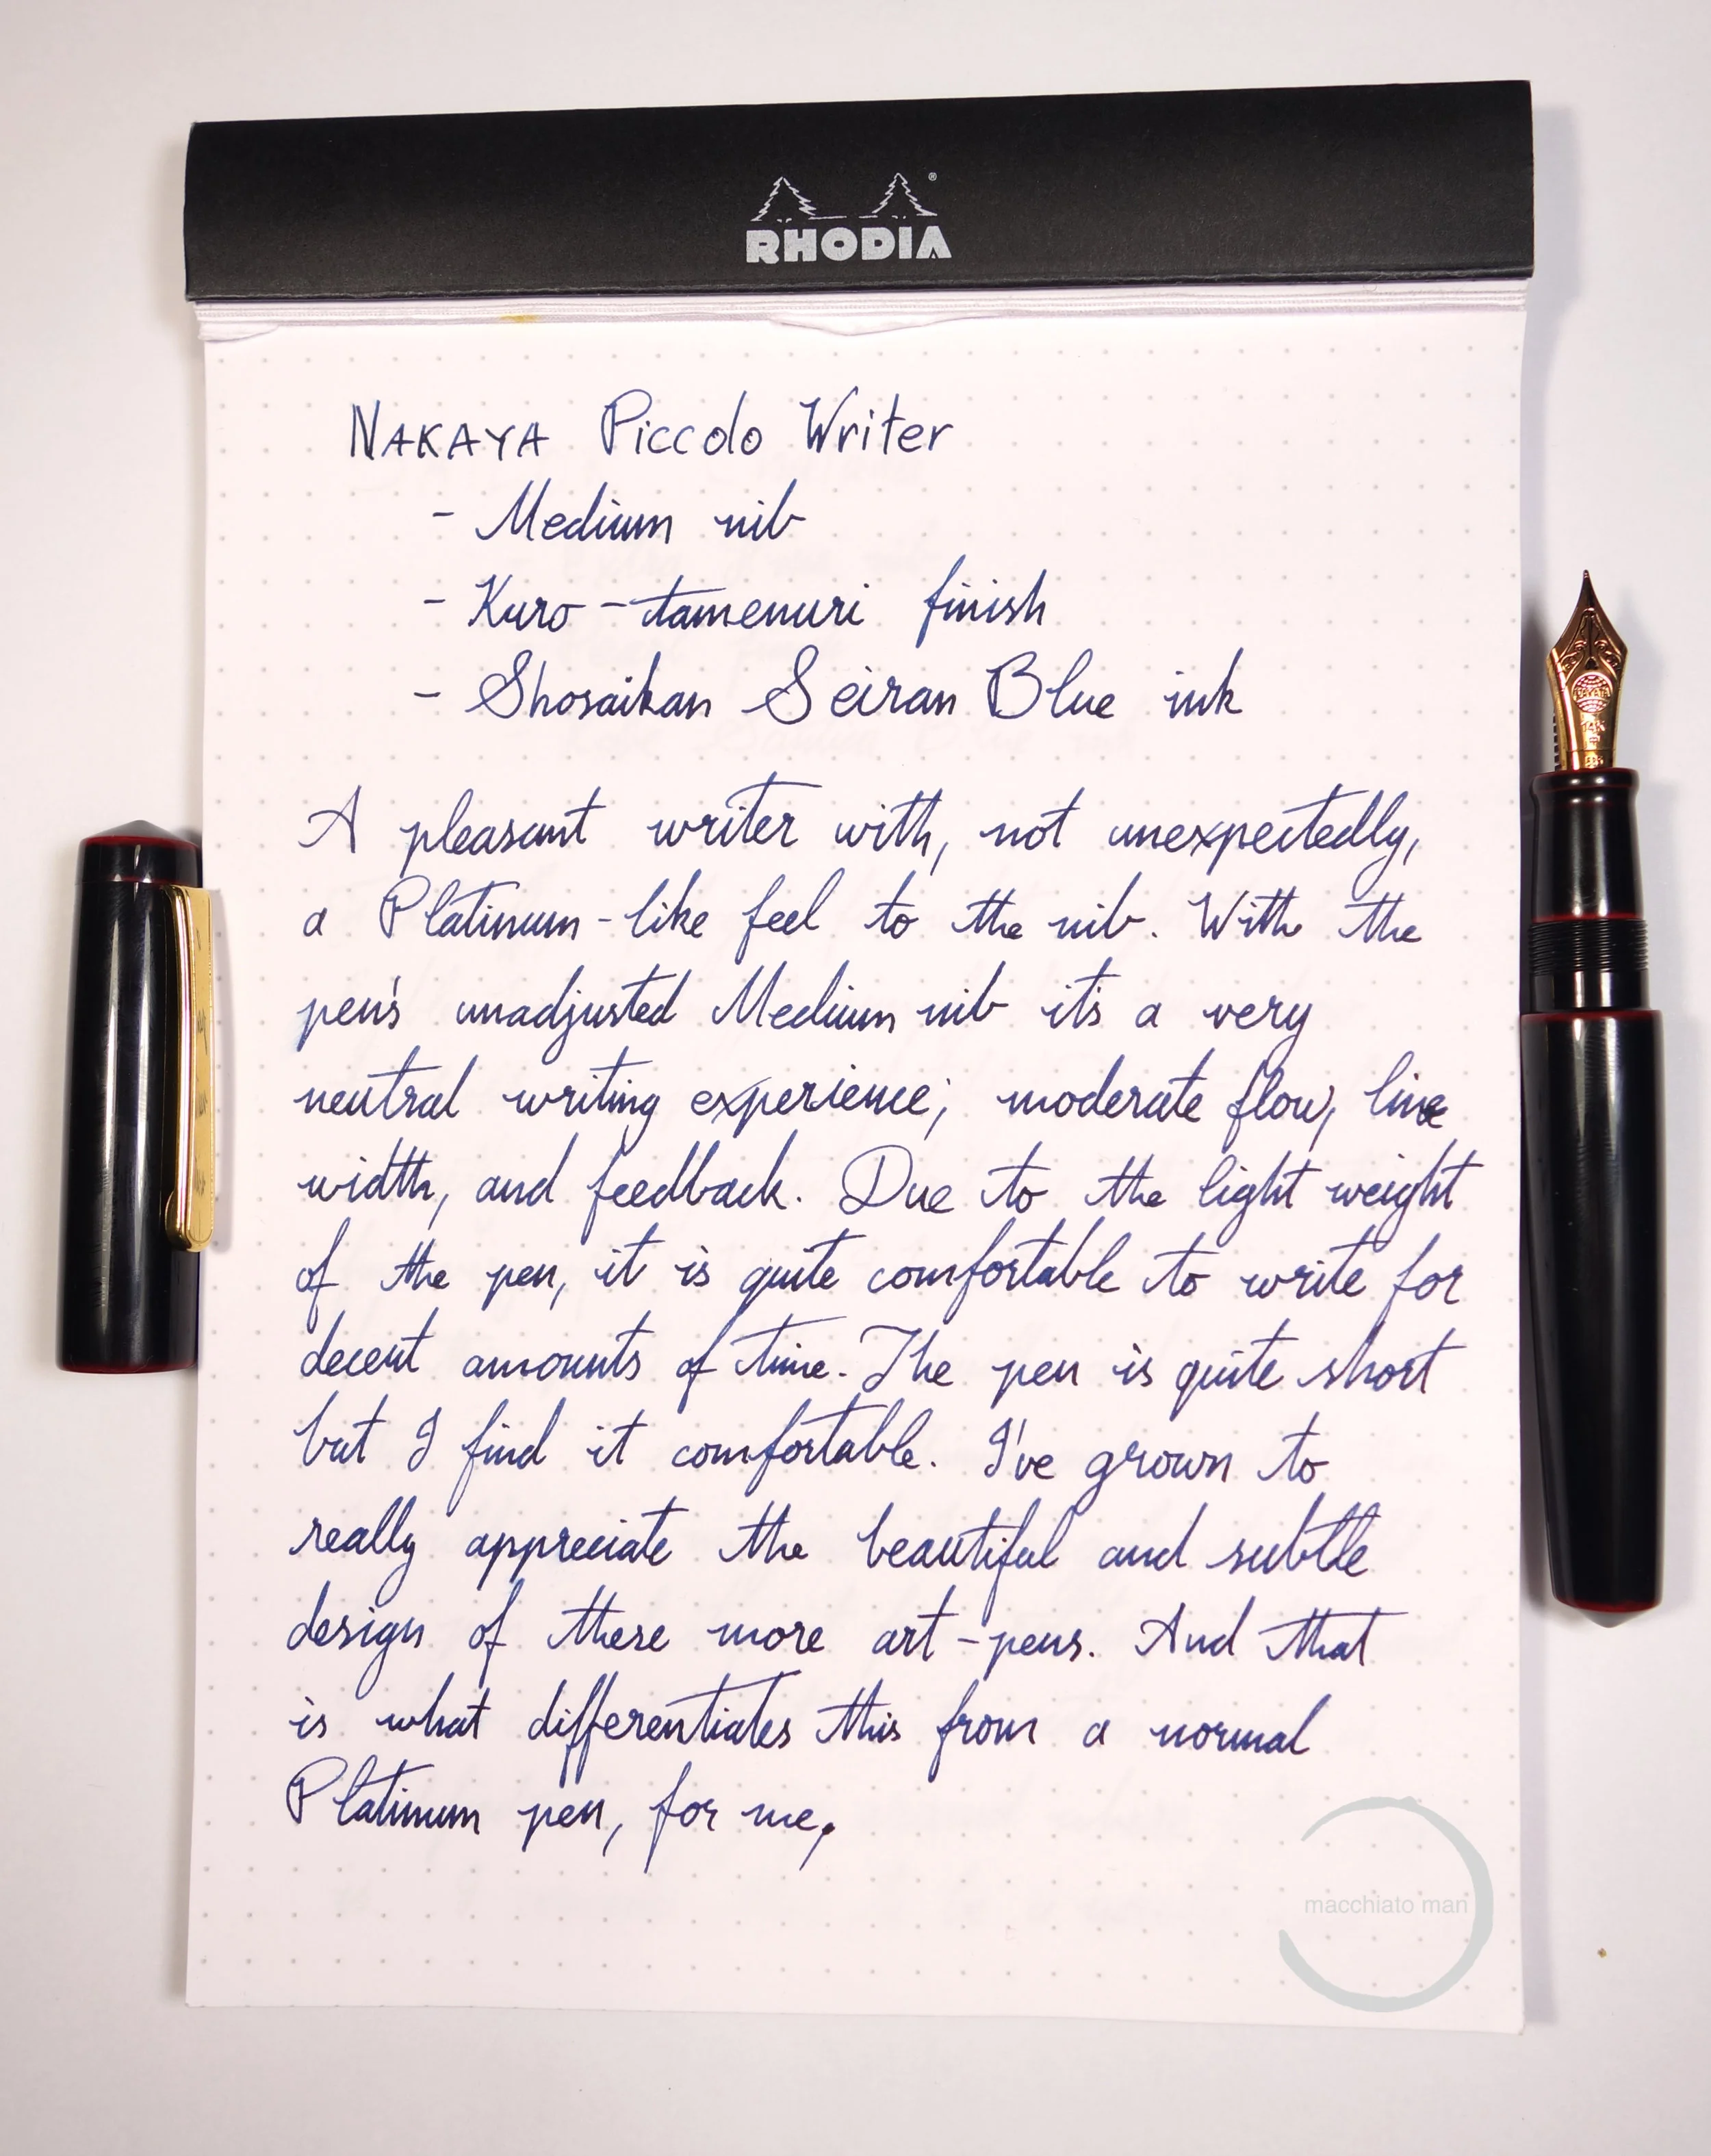 RHODIA
NAKAYA Piccolo Writer
- Medium nib
- Kuro-tamenuri finish
- Shosaikan Seiran Blue ink
A pleasant writer with, not unexpectedly,
a Platinum-like feel to the nib. With the
pen's unadjusted Medium nib it's a very
neutral writing experience; moderate flow, line
width, and feedback. Due to the light weight
of the pen, it is quite comfortable to write for
decent amounts of time. The pen is quite short
but I find it comfortable. I've grown to
really appreciate the beautiful and subtle
design of these more art-pens. And that
is what differentiates this from a normal
Platinum pen, for me.
macchiato man
14K